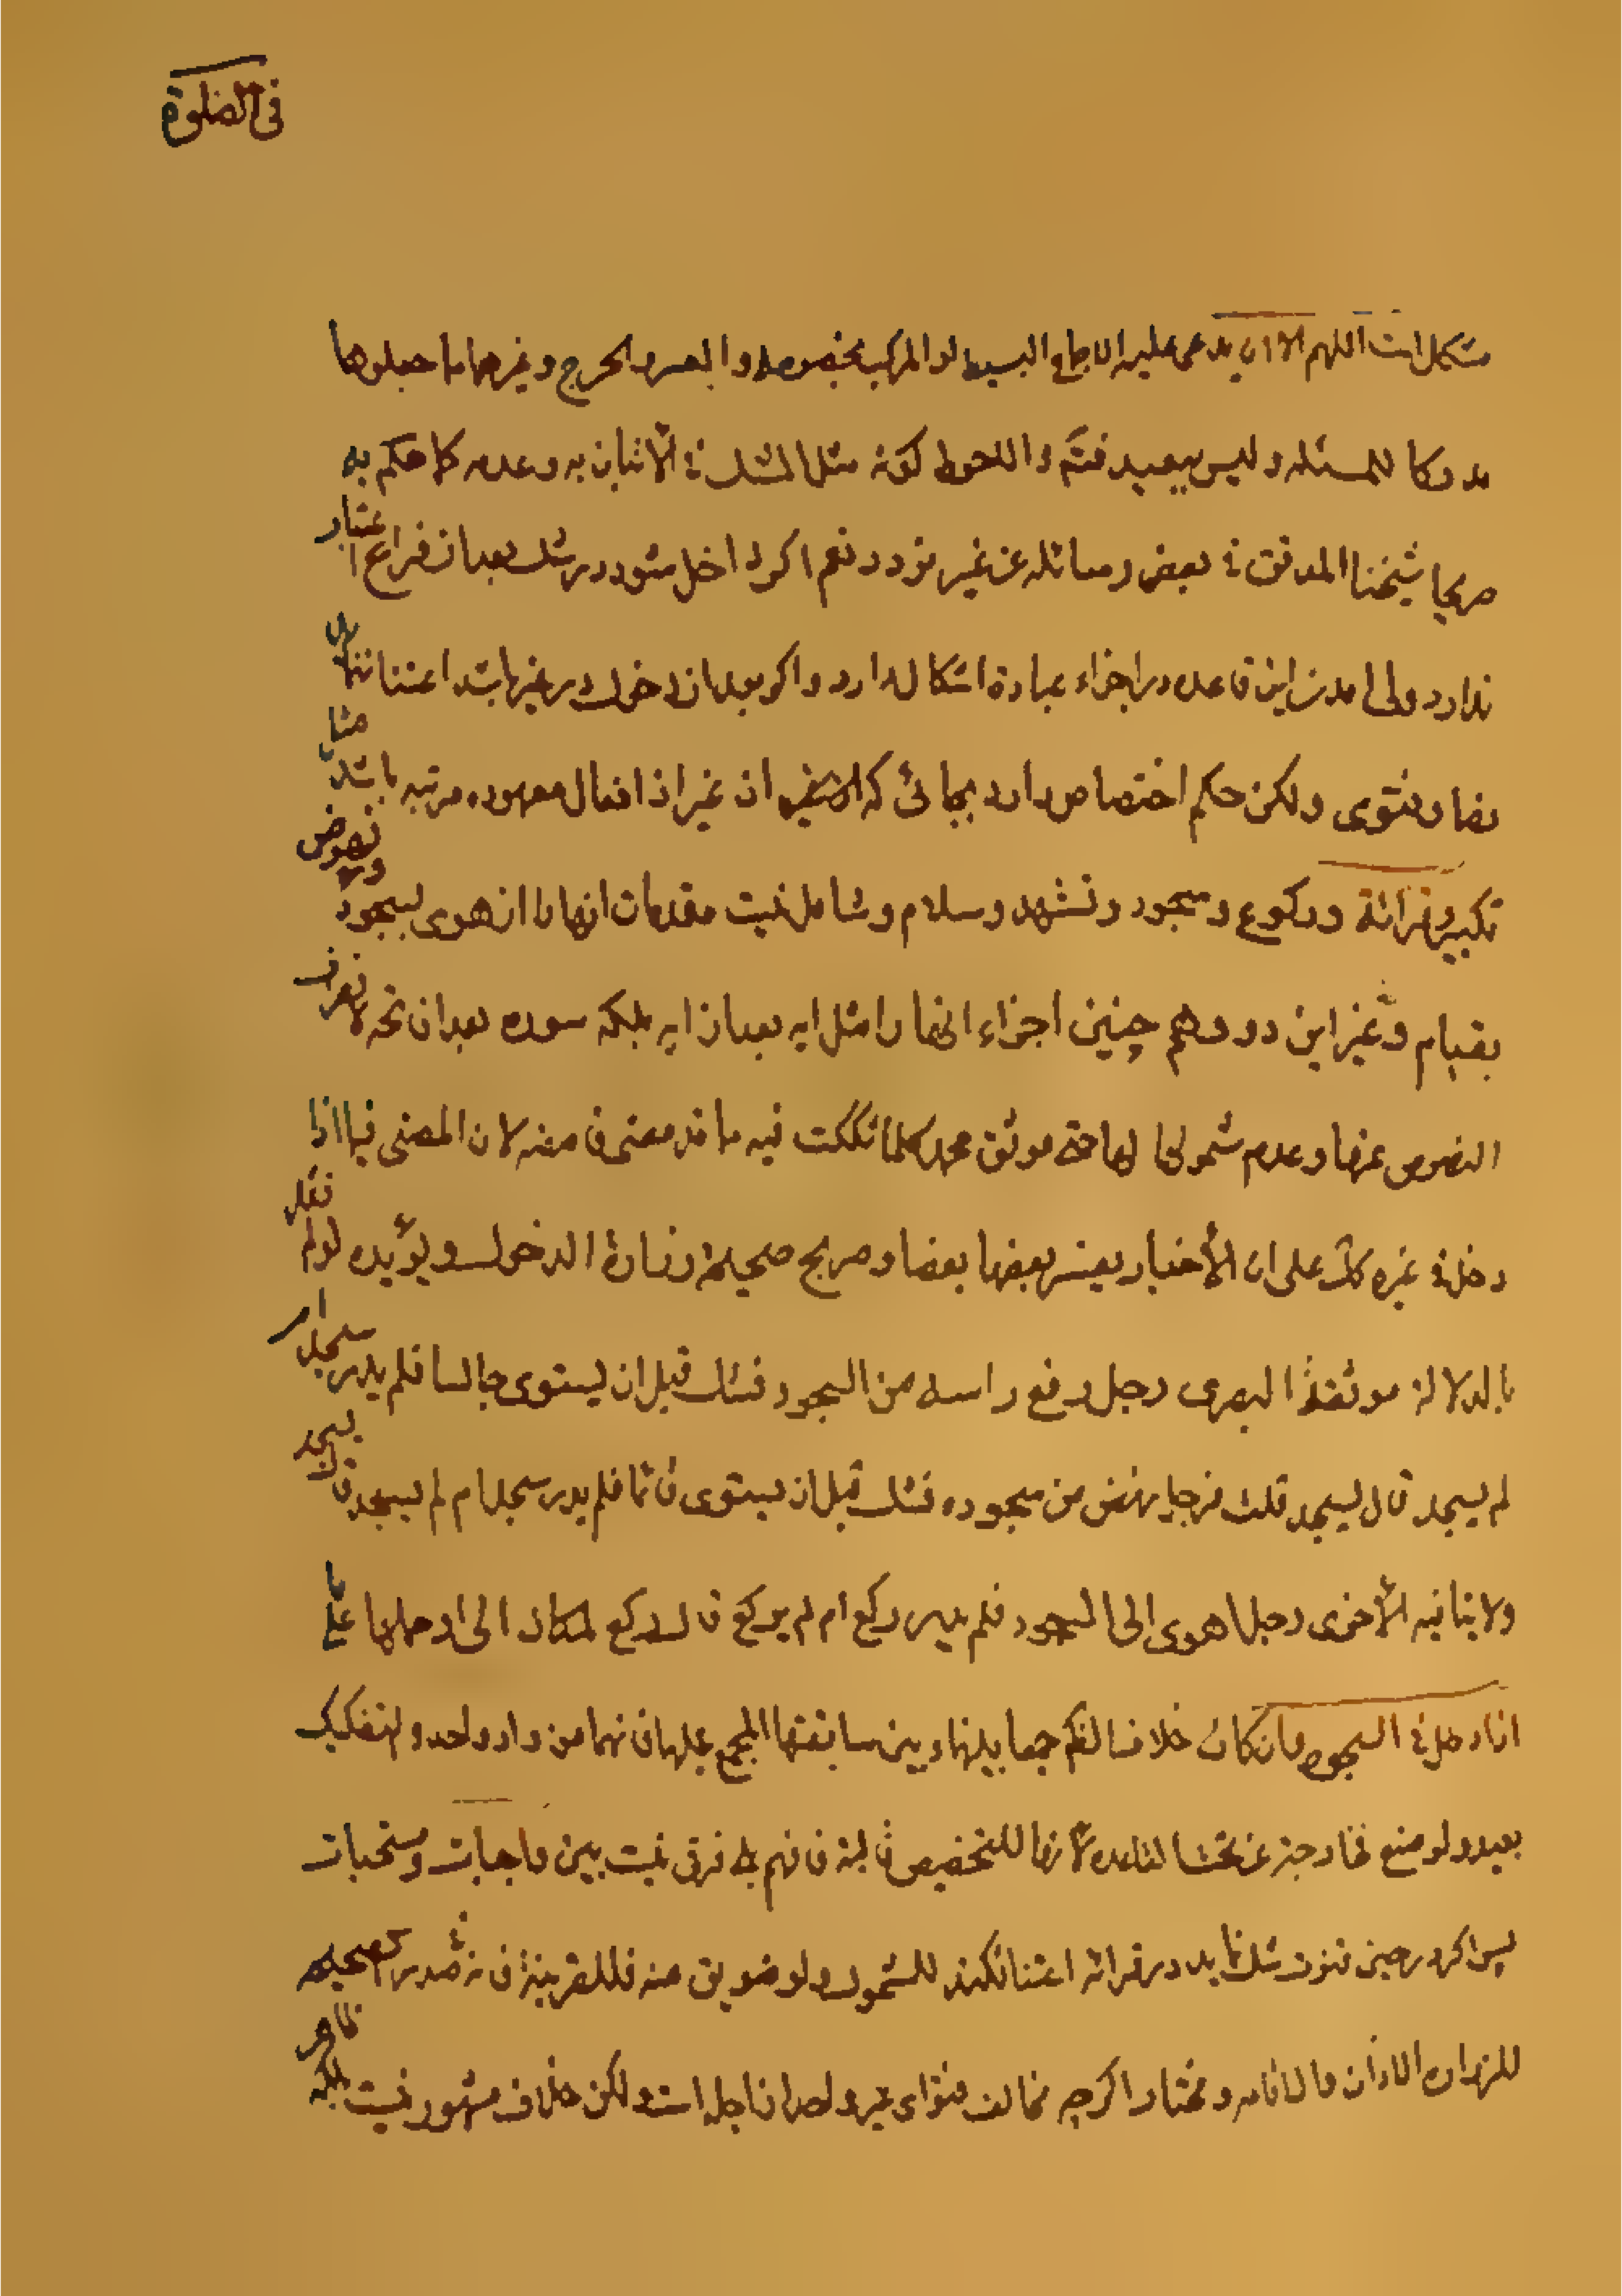 في الصلوة
مشكل است اللهم الا ان يدعى عليه الاجماع البسيط او المركب بخصوصه او العسر والحرج وغيرهما مما جعلوها
مدركا للمسئله وليس ببعيد فتم والاحوط كونه مثل الشك في الأتيان به وعدمه كما حكم به
صريحا شيخنا المدقق في بعض رسائله عن غير تردد نعم اكر داخل شود در شك بعد از فراغ اعتبار
ندارد ولى امدن اين قاعده در اجزاء عبادة اشكال دارد واكر بعد از دخول در غير باشد اعتنا نشايد
نصا وفتوى ولكن حكم اختصاص دارد بجائى كه ان غير از افعال معهوده مرتبه باشد مثل
تكبير وقرائة وركوع وسجود وتشهد وسلام وشامل نيست مقدمات انها را از هوى لسجود ونهوض
بقيام وغير اين دو وهم چنين اجزاء انها را مثل ايه بعد از ايه بلكه سوره بعد از حمد لانصراف
النصوص عنها وعدم شمولها لها حتى موثق محمد كلما شككت فيه مما قد مضى فامضه لان المضى فيما اذا
دخل في غيره كك على ان الأخبار يفسر بعضها بعضا وصريح صحيحة زرارة الدخول ويؤيده لو لم نقل
بالدلالة موثقة البصرى رجل رفع راسه من السجود فشك قبل ان يستوى جالسا فلم يدر سجد ام
لم يسجد قال يسجد قلت فرجل نهض من سجوده فشك قبل ان يستوى قائما فلم يدر سجد ام لم يسجد قال يسجد
ولا ينافيه الأخرى رجل هوى الى السجود فلم يدر ركع ام لم يركع قال قد ركع لمكان الى او حملها على ما
اذا دخل في السجود وان كان خلاف جمعا بينها وبين سابقتها المجمع عليها فانهما من واد واحد والتفكيك
بعيد ولو منع فخارجة عن تحت القاعده لأنها للتخصيص قابلة فافهم بلى فرقى نيست بين واجبات ومستحبات
پس اكر در حين قنوت شك نمايد در قرائه اعتنا نكند للشمول ولو ضويق منه فللقرينة فانه في صدر الصحيحه
للزرارة الاذان والاقامه ومختار اكرچه مخالف فتواى غير واحد از اجله است ولكن خلاف مشهور نيست بلكه ظاهر